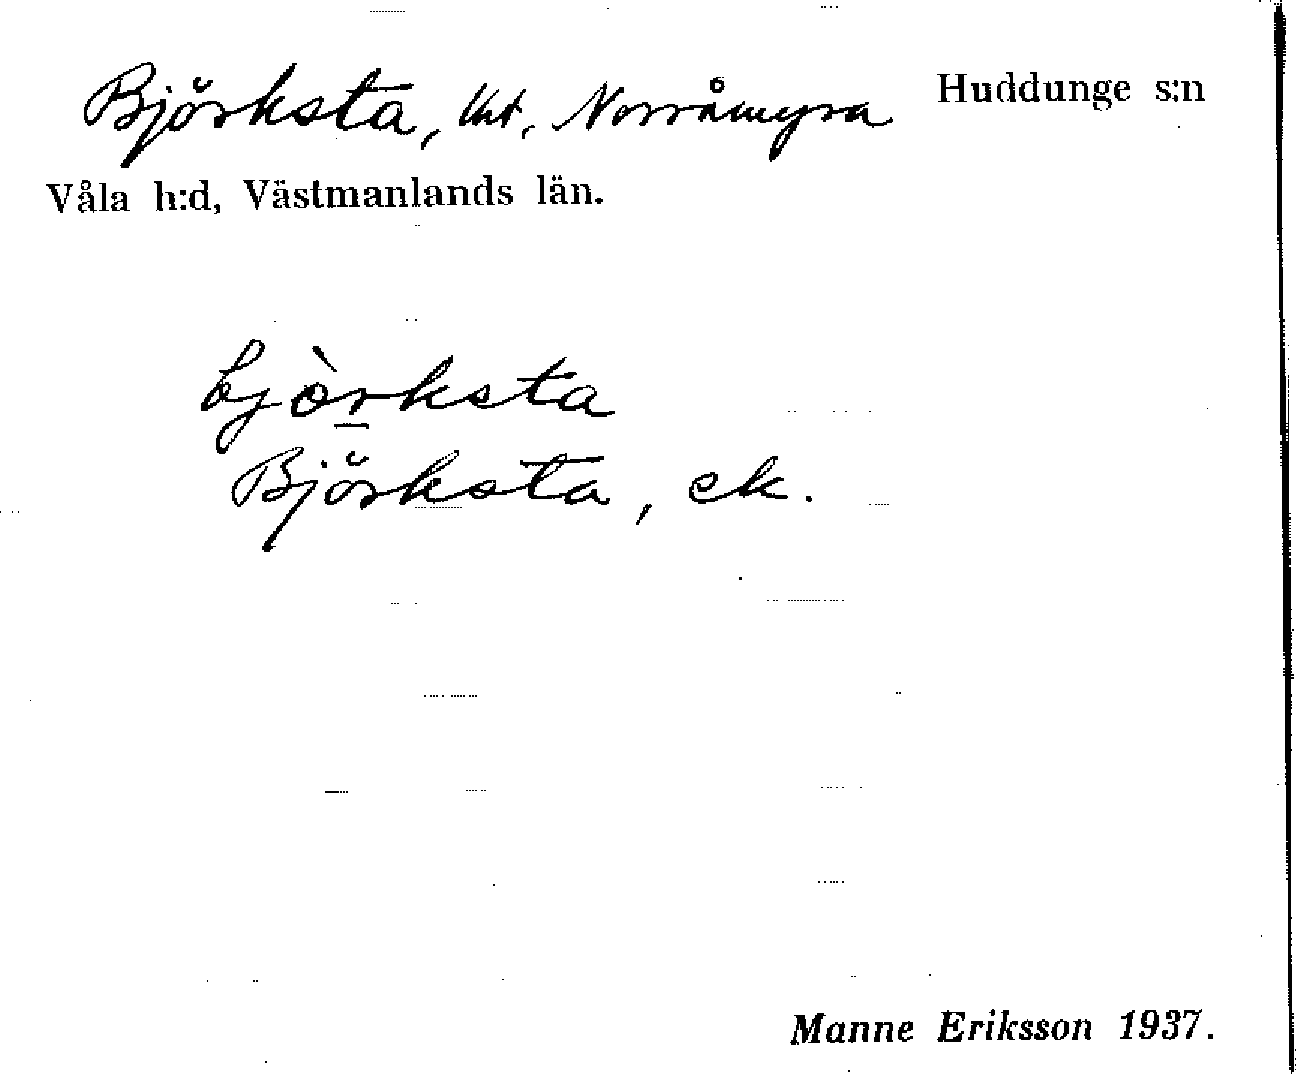 Björksta, lht, Norråmyra Huddunge s:n
Våla h:d, Västmanlands län.
bjòrksta
Björksta, ek.
Manne Eriksson 1937.